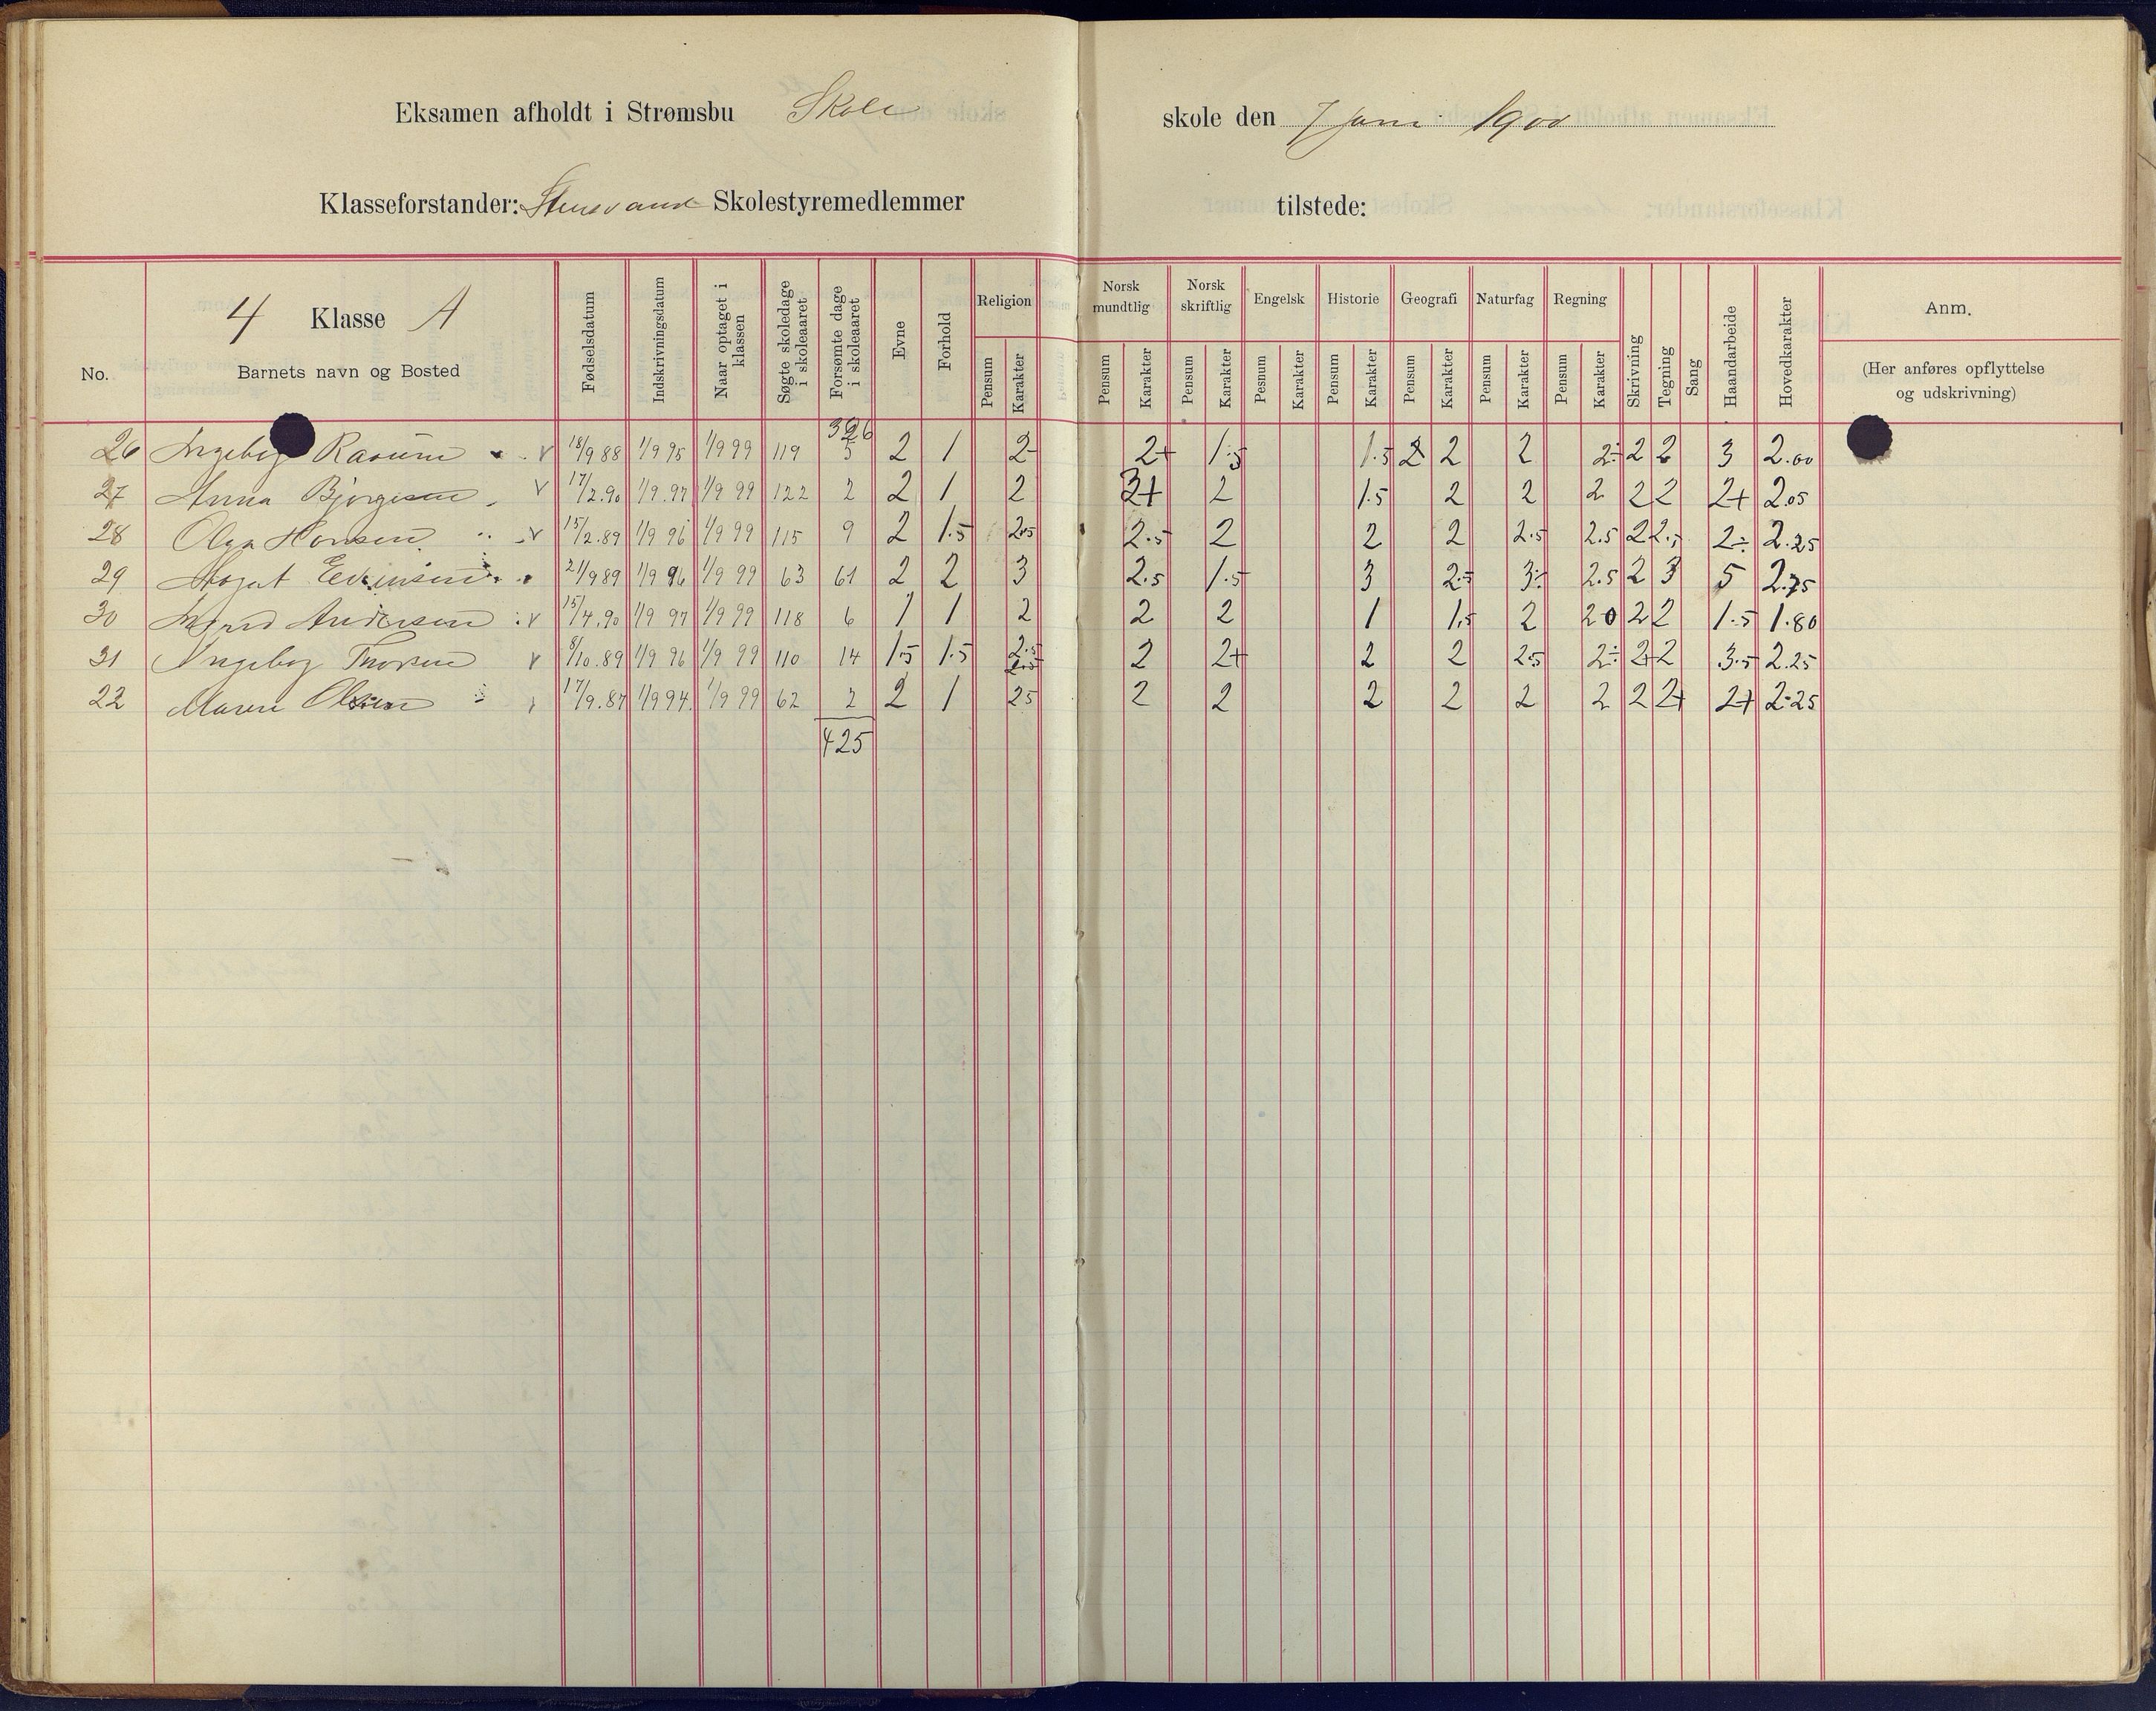 Eksamen afholdt i Strømsbu Skole skole den 7 Juni 1900
Klasseforstander: Skolestyremedlemmer tilstede:
4 Klasse A
No. Barnets navn og Bosted Fødselsdatum Indskrivningsdatum Naar optaget i klassen Søgte skoledage i skoleaaret Forsømte dage i skoleaaret Evne Forhold Religion Pensum Karakter Norsk mundtlig Pensum Karakter Norsk skriftlig Pensum Karakter Engelsk Pesnum Karakter Historie Pensum Karakter Geografi Pensum Karakter Naturfag Pensum Karakter Regning Pensum Karakter Skrivning Tegning Sang Haandarbeide Hovedkarakter Anm. (Her anføres opflyttelse og udskrivning)
326
26 Ingeb 18/9 88 1/9 95 1/9 99 119 5 2 1 2- 2+ 1.5 1.5 2 2 2 2÷ 2 2 3 2.00
27 Anna Bjørgisen 17/2.90 1/9.97 1/9 99 122 2 2 1 2 3+ 2 1.5 2 2 2 2 2 2+ 2.05
28 Olga Hansen 15/2.89 1/9 96 1/9 99 115 9 2 1.5 2.5 2.5 2 2 2 2.5 2.5 2 2.5 2÷ 2.25
29 21/9 89 1/9 96 1/9 99 63 61 2 2 3 2.5 1.5 3 2.5 3÷ 2.5 2 3 5 2.75
30 Andersen 15/4.90 1/9 97 1/9 99 118 6 1 1 2 2 2 1 1,5 2 20 2 2 1.5 1.80
31 Ingebog Thorsen 8/10.89 1/9 96 1/9 99 110 14 1.5 1.5 2.5 2 2+ 2 2 2.5 2÷ 2+ 2 3.5 2.25
22 Maren Olsen 17/9.87 1/9 94 1/9 99 62 2 2 1 25 2 2 2 2 2 2 2 2+ 2+ 2.25
425